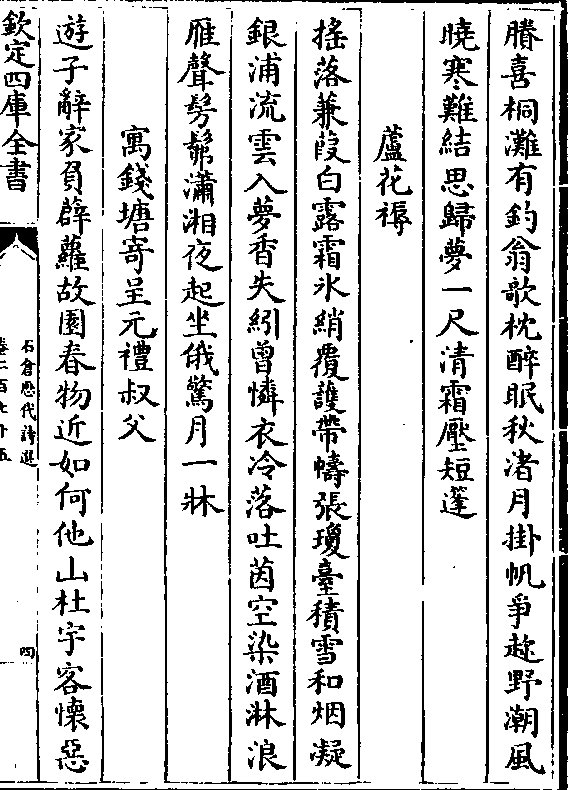 賸喜桐灘有釣翁歌枕醉眠秋渚月掛帆爭趂野潮風
曉寒難結思歸夢一尺清霜壓短蓬
蘆花褥
搖落蒹葭白露霜氷綃覆護帶幬張瓊臺積雪和烟凝
銀浦流雲入夢香失綱曾憐衣冷落吐茵空染酒淋浪
雁聲髣髴瀟湘夜起坐俄驚月一牀
寓錢塘寄呈元禮叔父
遊子辭家負薜蘿故園春物近如何他山杜宇客懷惡
欽定四庫全書
石倉歷代詩選
四